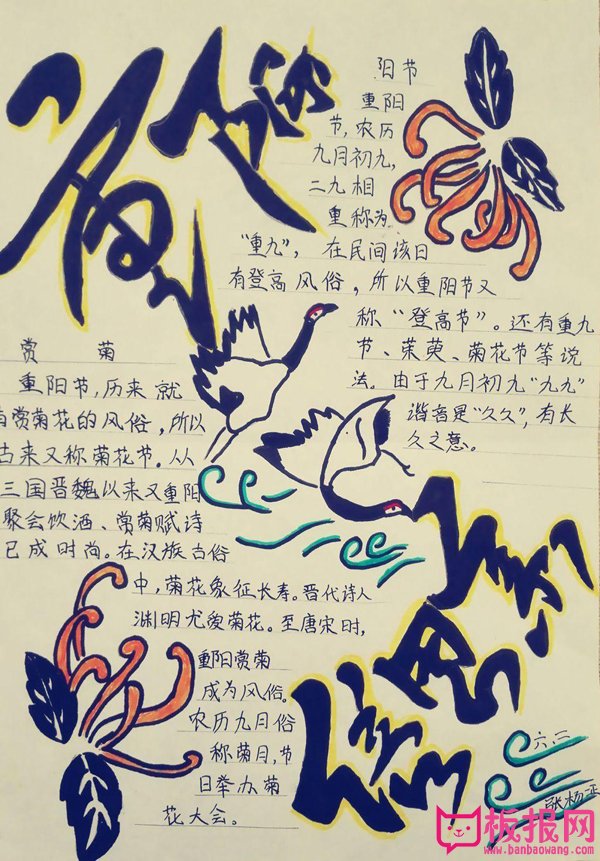 重阳
阳节
重阳
节，农历
九月初九，
二九相
重称为
“重九”， 在民间该日
有登高风俗，所以重阳节又
称“登高节”。还有重九
节、茱萸、菊花节等说
法。由于九月初九“九九”
谐音是“久久”，有长
久之意。
赏 菊
重阳节，历来就
有赏菊花的风俗，所以
古来又称菊花节。从
三国晋魏以来又重阳
聚会饮酒、赏菊赋诗
已成时尚。在汉族古俗
中，菊花象征长寿。晋代诗人
渊明尤爱菊花。至唐宋时，
重阳赏菊
成为风俗。
农历九月俗
称菊月，节
日举办菊
花大会。
倍思亲
六.二
张杨
板报网
www.banbaowang.com